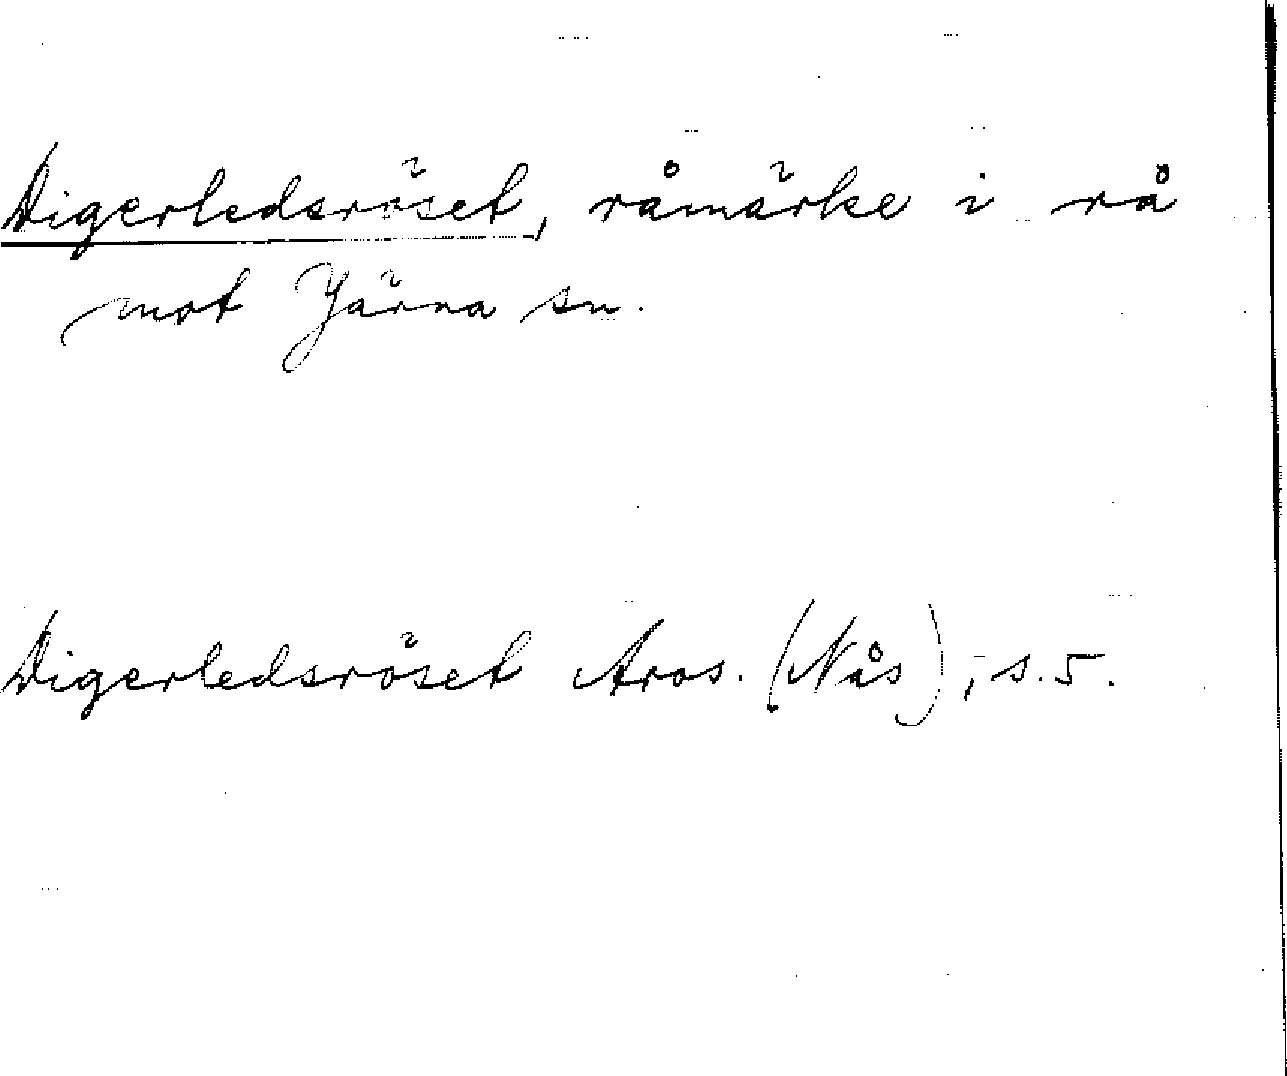 Digerledsröset, råmärke i rå
mot Järna sn.
Digerledsröset Aros. (Nås), s. 5.